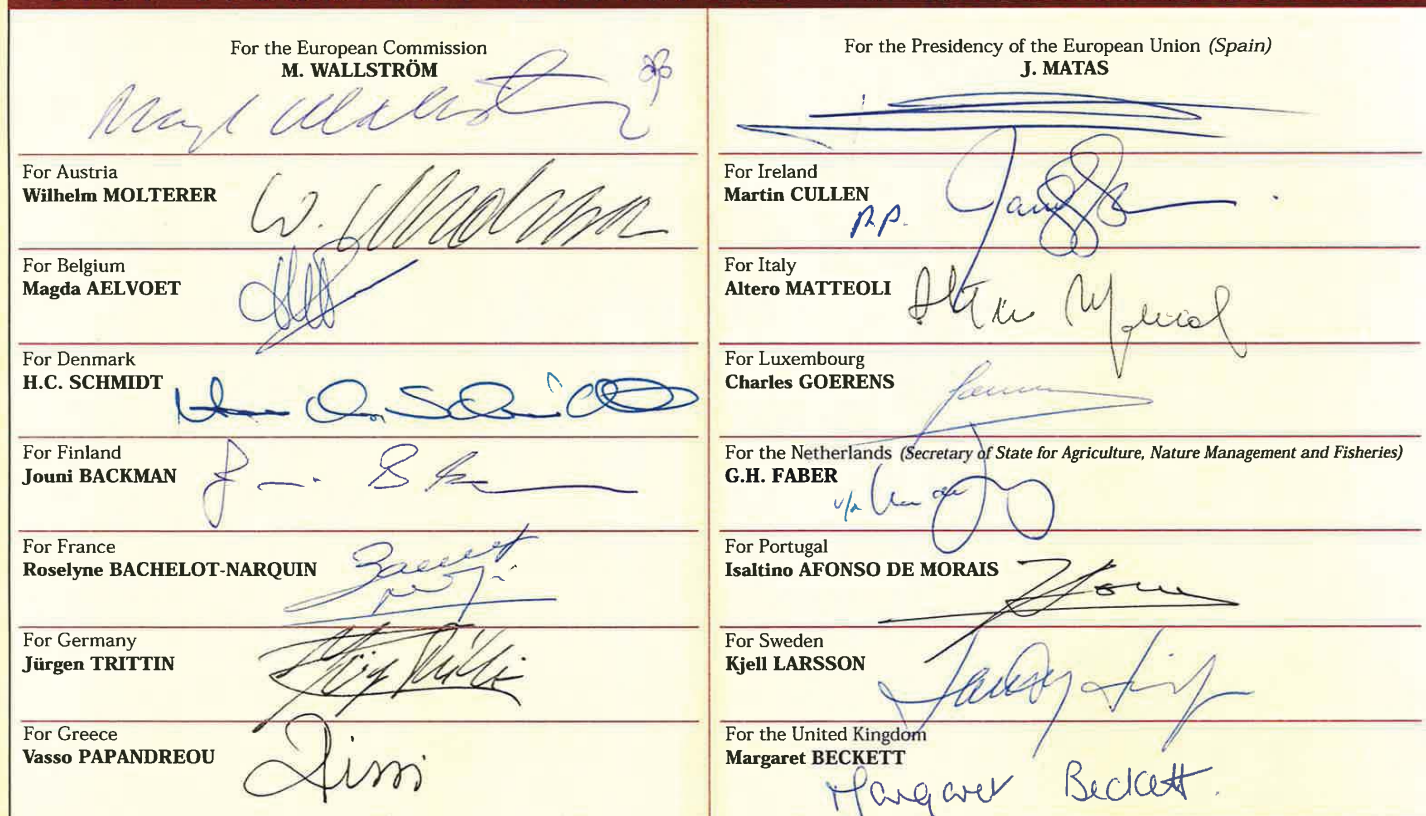 For the European Commission
M. WALLSTRÖM
For Austria
Wilhelm MOLTERER
For Belgium
Magda AELVOET
For Denmark
H.C. SCHMIDT
For Finland
Jouni BACKMAN
For France
Roselyne BACHELOT-NARQUIN
For Germany
Jürgen TRITTIN
For Greece
Vasso PAPANDREOU
For the Presidency of the European Union (Spain)
J. MATAS
For Ireland
Martin CULLEN
p.p.
For Italy
Altero MATTEOLI
For Luxembourg
Charles GOERENS
For the Netherlands (Secretary of State for Agriculture, Nature Management and Fisheries)
G.H. FABER
For Portugal
Isaltino AFONSO DE MORAIS
For Sweden
Kjell LARSSON
For the United Kingdom
Margaret BECKETT
Margaret Beckett.